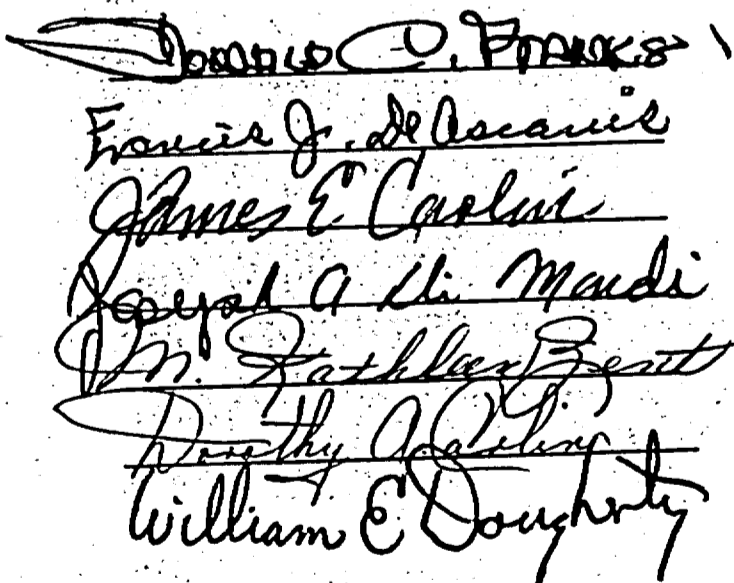 Donald C. Franks
Francis J. De Ascanis
James E. Carlini
Joseph A Di Mardi
M. Kathleen Bent
Dorothy A. Carlini
William E Dougherty